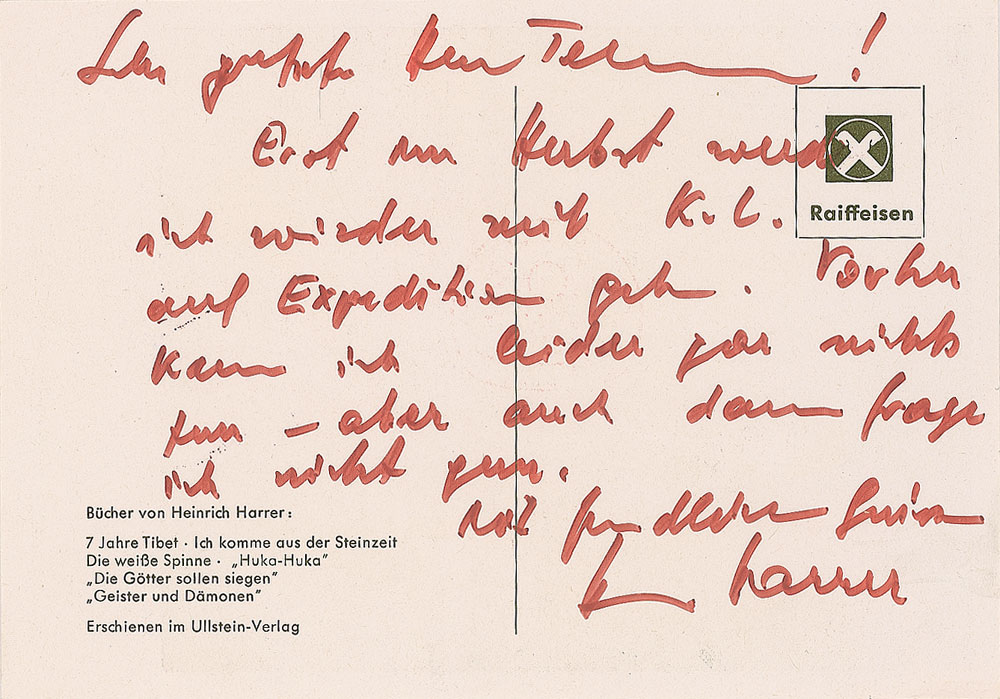 Sehr geehrter Herr
Erst im Herbst werde
ich wieder mit K. L.
auf Expedition gehen. Vorher
kann ich leider gar nichts
tun – aber auch dann frage
ich nicht gern.
Mit freundlichen Grüssen
Harrer
Raiffeisen
Bücher von Heinrich Harrer:
7 Jahre Tibet · Ich komme aus der Steinzeit
Die weiße Spinne · „Huka-Huka”
„Die Götter sollen siegen”
„Geister und Dämonen”
Erschienen im Ullstein-Verlag